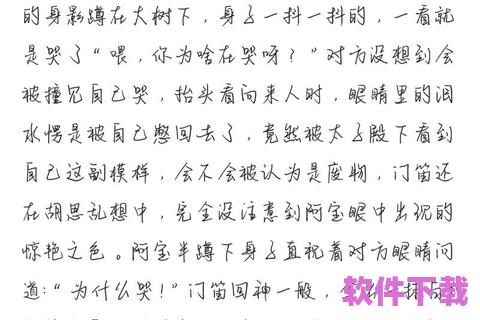 的身影蹲在大树下，身子一抖一抖的，一看就
是哭了“喂，你为啥在哭呀？”对方没想到会
被撞见自己哭，抬头看向来人时，眼睛里的泪
水愣是被自己憋回去了，竟然被太子殿下看到
自己这副模样，会不会被认为是废物，门笛还
在胡思乱想中，完全没注意到阿宝眼中出现的
惊艳之色。阿宝半蹲下身子直视着对方眼睛问
道:“为什么哭！”门笛回神一般，
软件下载